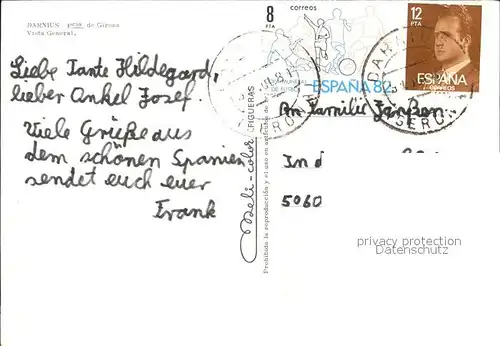 DARNIUS prov. de Girona
Vista General.
Liebe Tante Hildegard,
lieber Onkel Josef.
Viele Grüße aus
dem schönen Spanien
sendet euch euer
Frank
Deli-color FIGUERAS
Prohibida la reproducción y el uso
8
PTA
correos
ESPAÑA 82
12
PTA
ESPAÑA
CORREOS
An Familie Janßen
In d
5060
privacy protection
Datenschutz